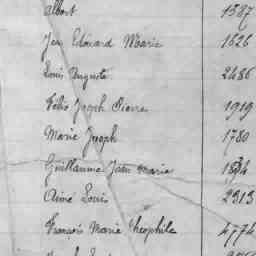 Albert 1387
Jean Edouard Marie 1626
Louis Auguste 2486
Félix Joseph Pierre 1919
Marie Joseph 1780
Guillaume Jean Marie 1894
Aimé Louis 2313
François Marie Théophile 4774